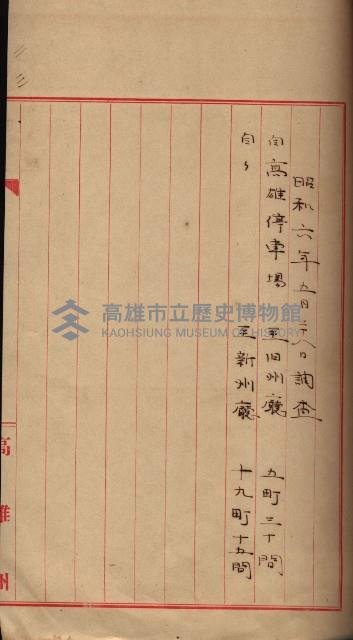 昭和六年五月二十八日調查
自高雄停車場 至旧州廳 五町三十間
自〃 至新州廳 十九町十五間
高雄州
高雄市立歷史博物館
KAOHSIUNG MUSEUM OF HISTORY